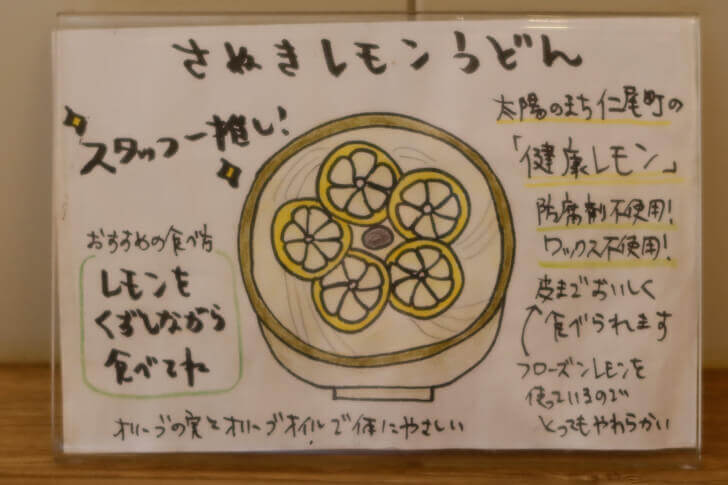 さぬきレモンうどん
スタッフ一推し!
おすすめの食べ方
レモンを
くずしながら
食べてね
太陽のまち仁尾町の
「健康レモン」
防腐剤不使用!
ワックス不使用!
皮までおいしく
食べられます
フローズンレモンを
使っているので
とってもやわらかい
オリーブの実とオリーブオイルで体にやさしい